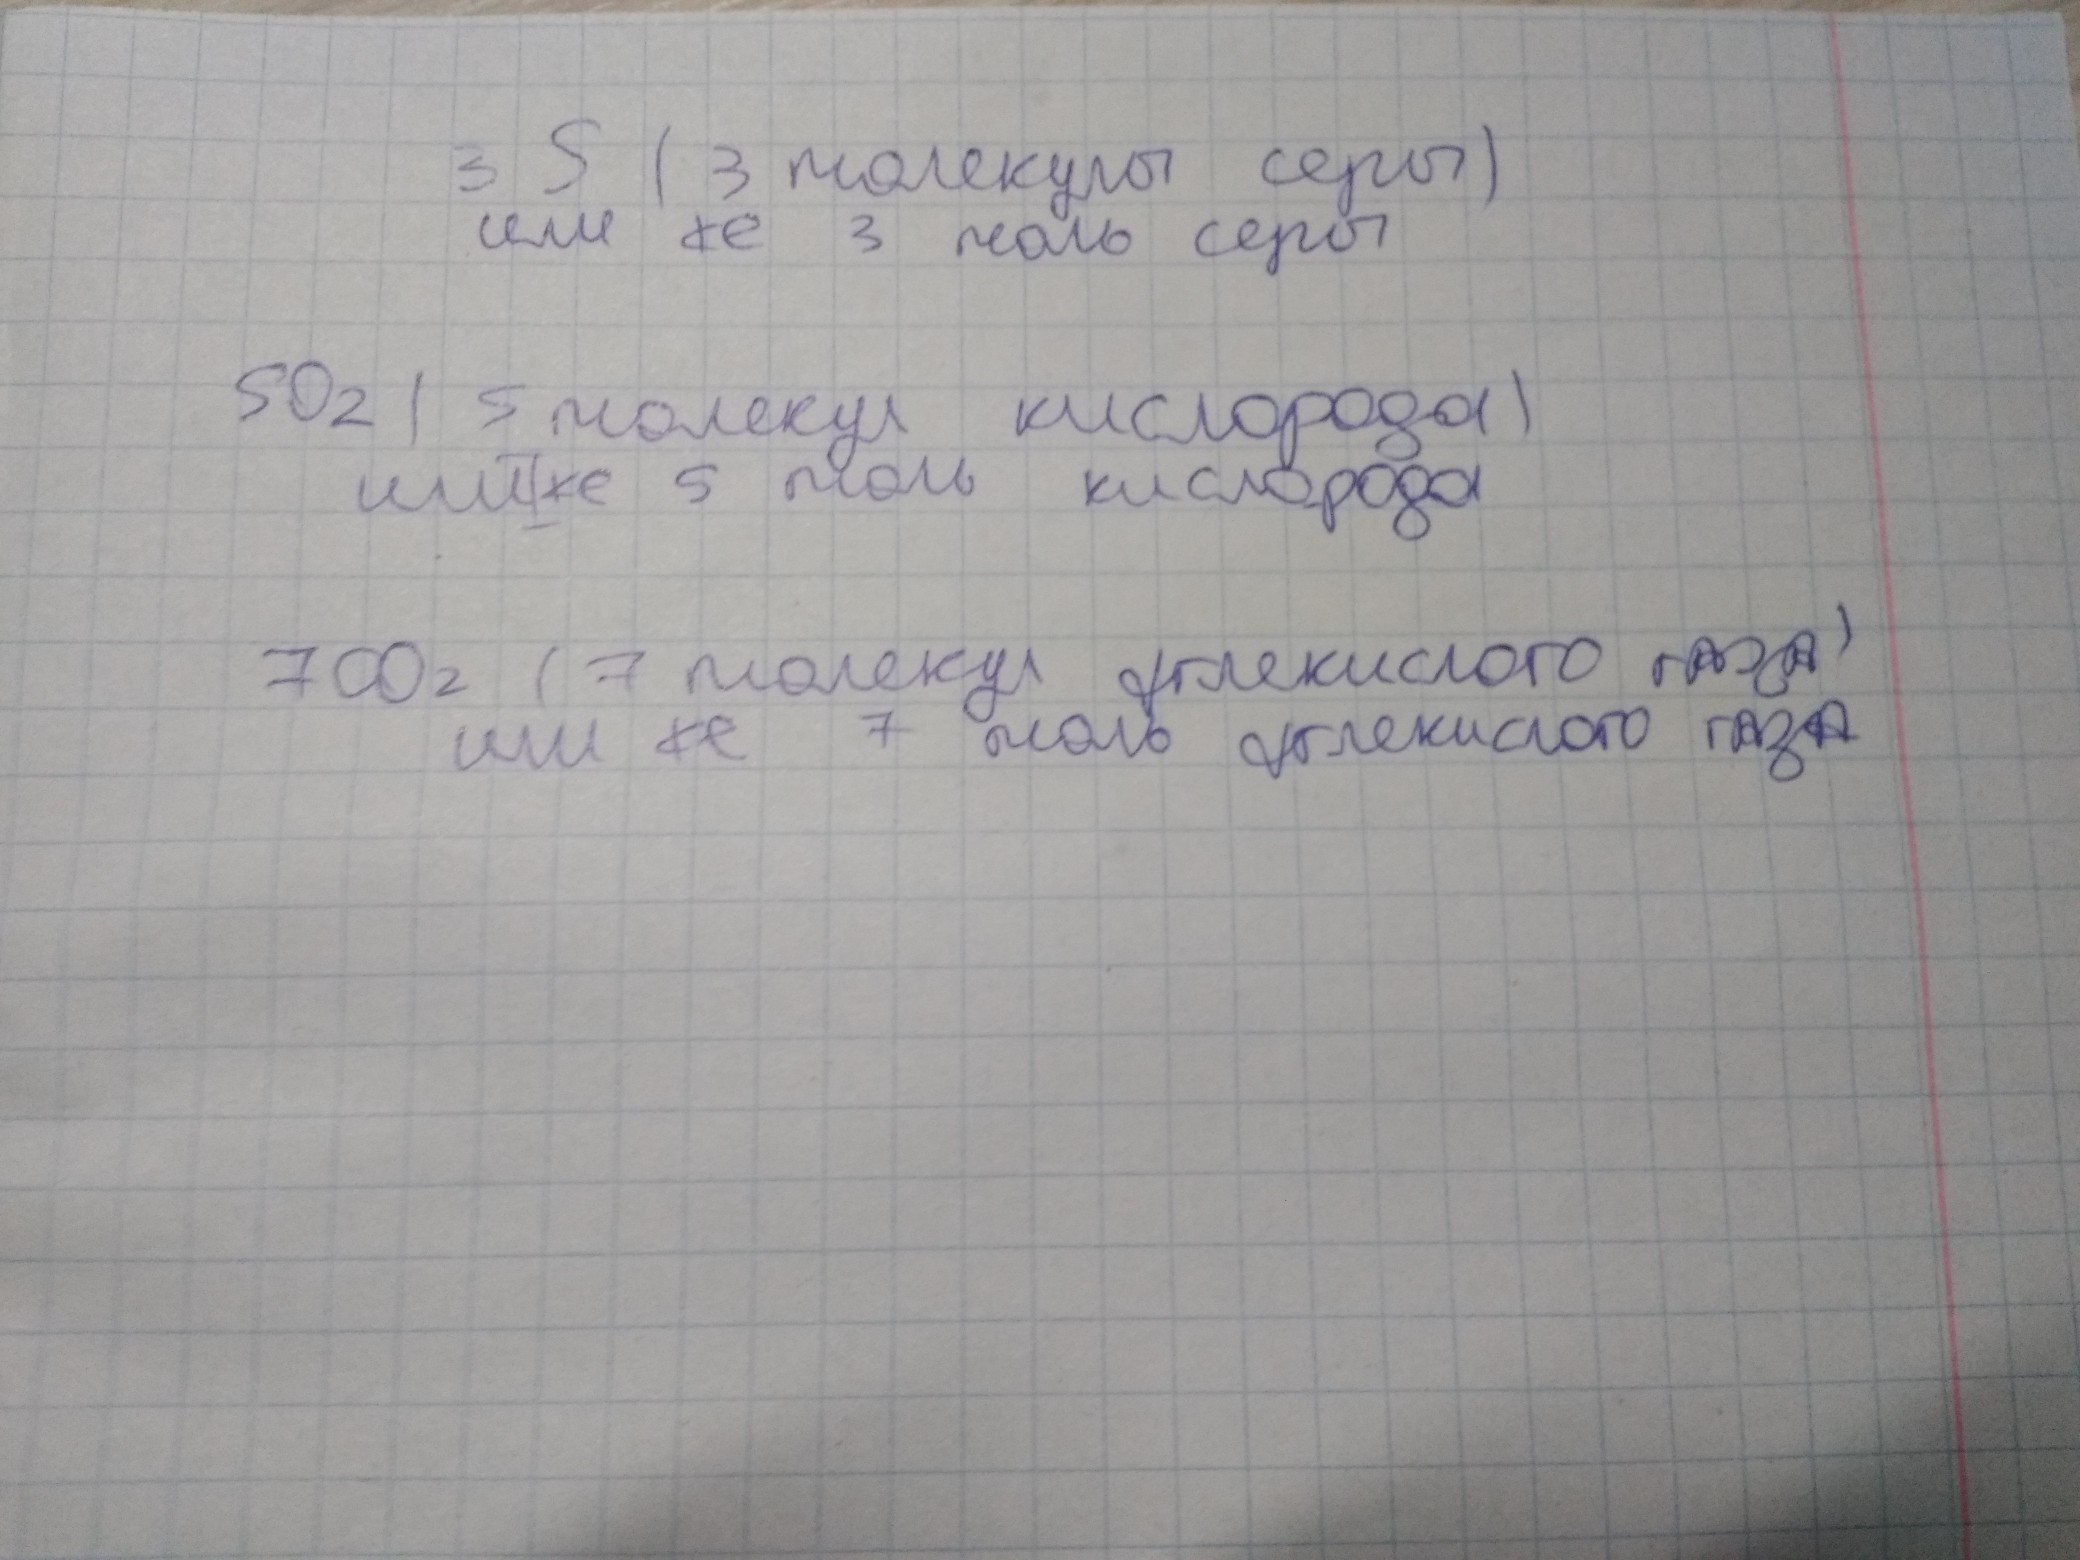 3 S ( 3 молекулы серы)
или же 3 моль серы
5O2 ( 5 молекул кислорода)
или же 5 моль кислорода
7 CO2 ( 7 молекул углекислого газа)
или же 7 моль углекислого газа